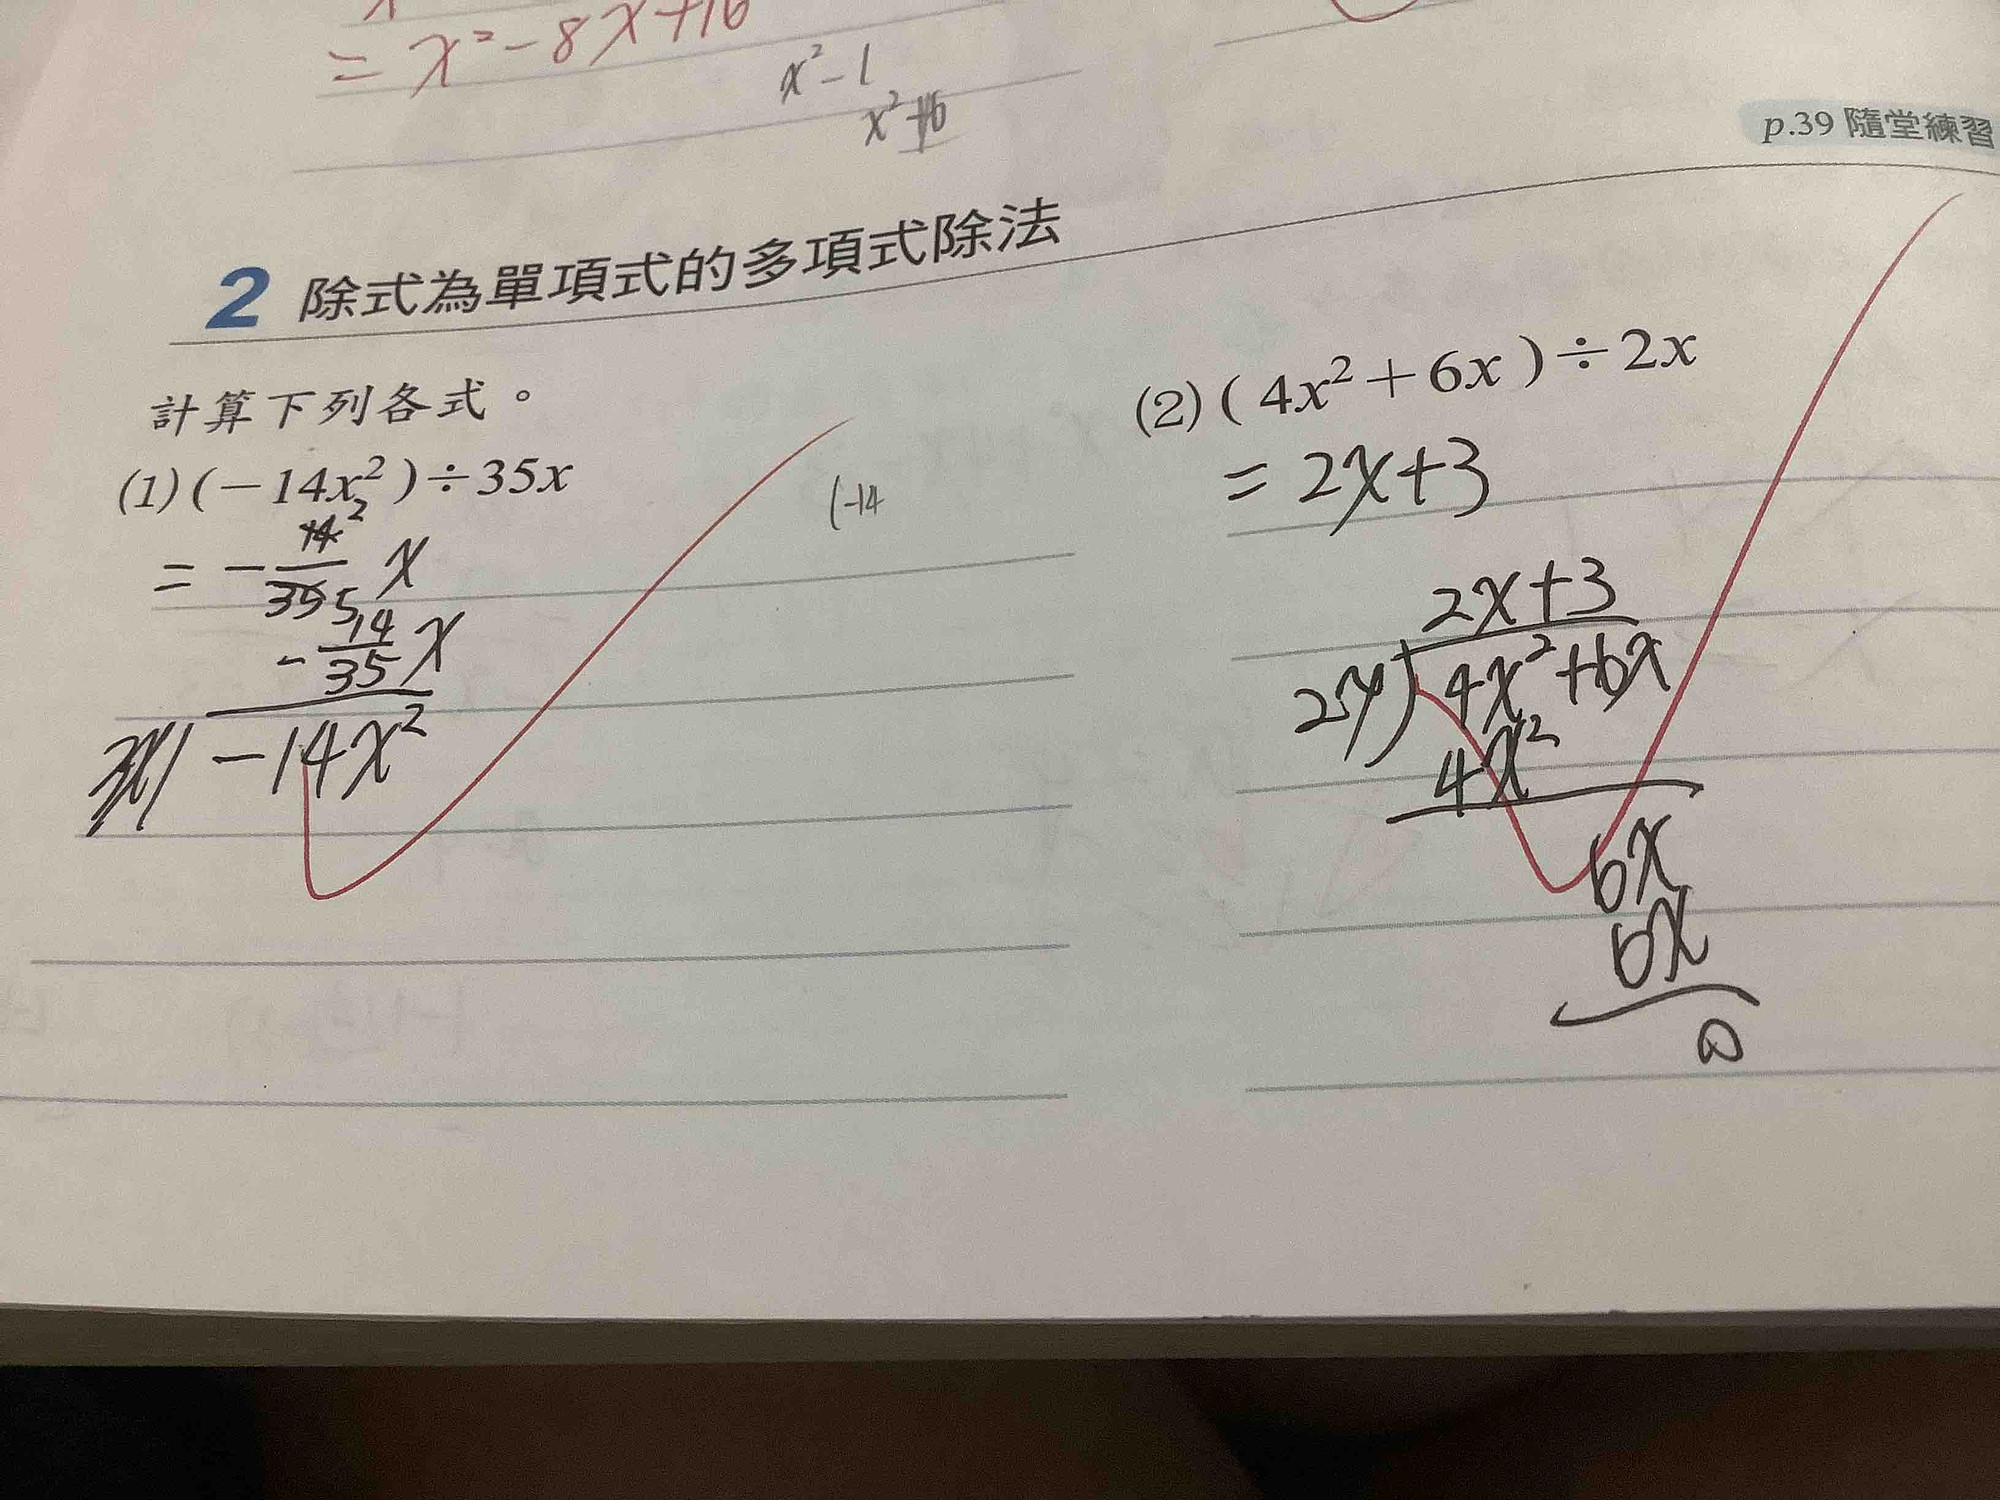 = x² - 8x + 16
x² - 1
x² + 6
p.39 隨堂練習
2 除式為單項式的多項式除法
計算下列各式。
(1) (-14x²) ÷ 35x
= - 14 2 / 35 5 x
- 14/35 x
-14x²
(-14
(2) (4x² + 6x) ÷ 2x
= 2x + 3
2x + 3
2x) 4x² + 6x
4x²
6x
6x
0